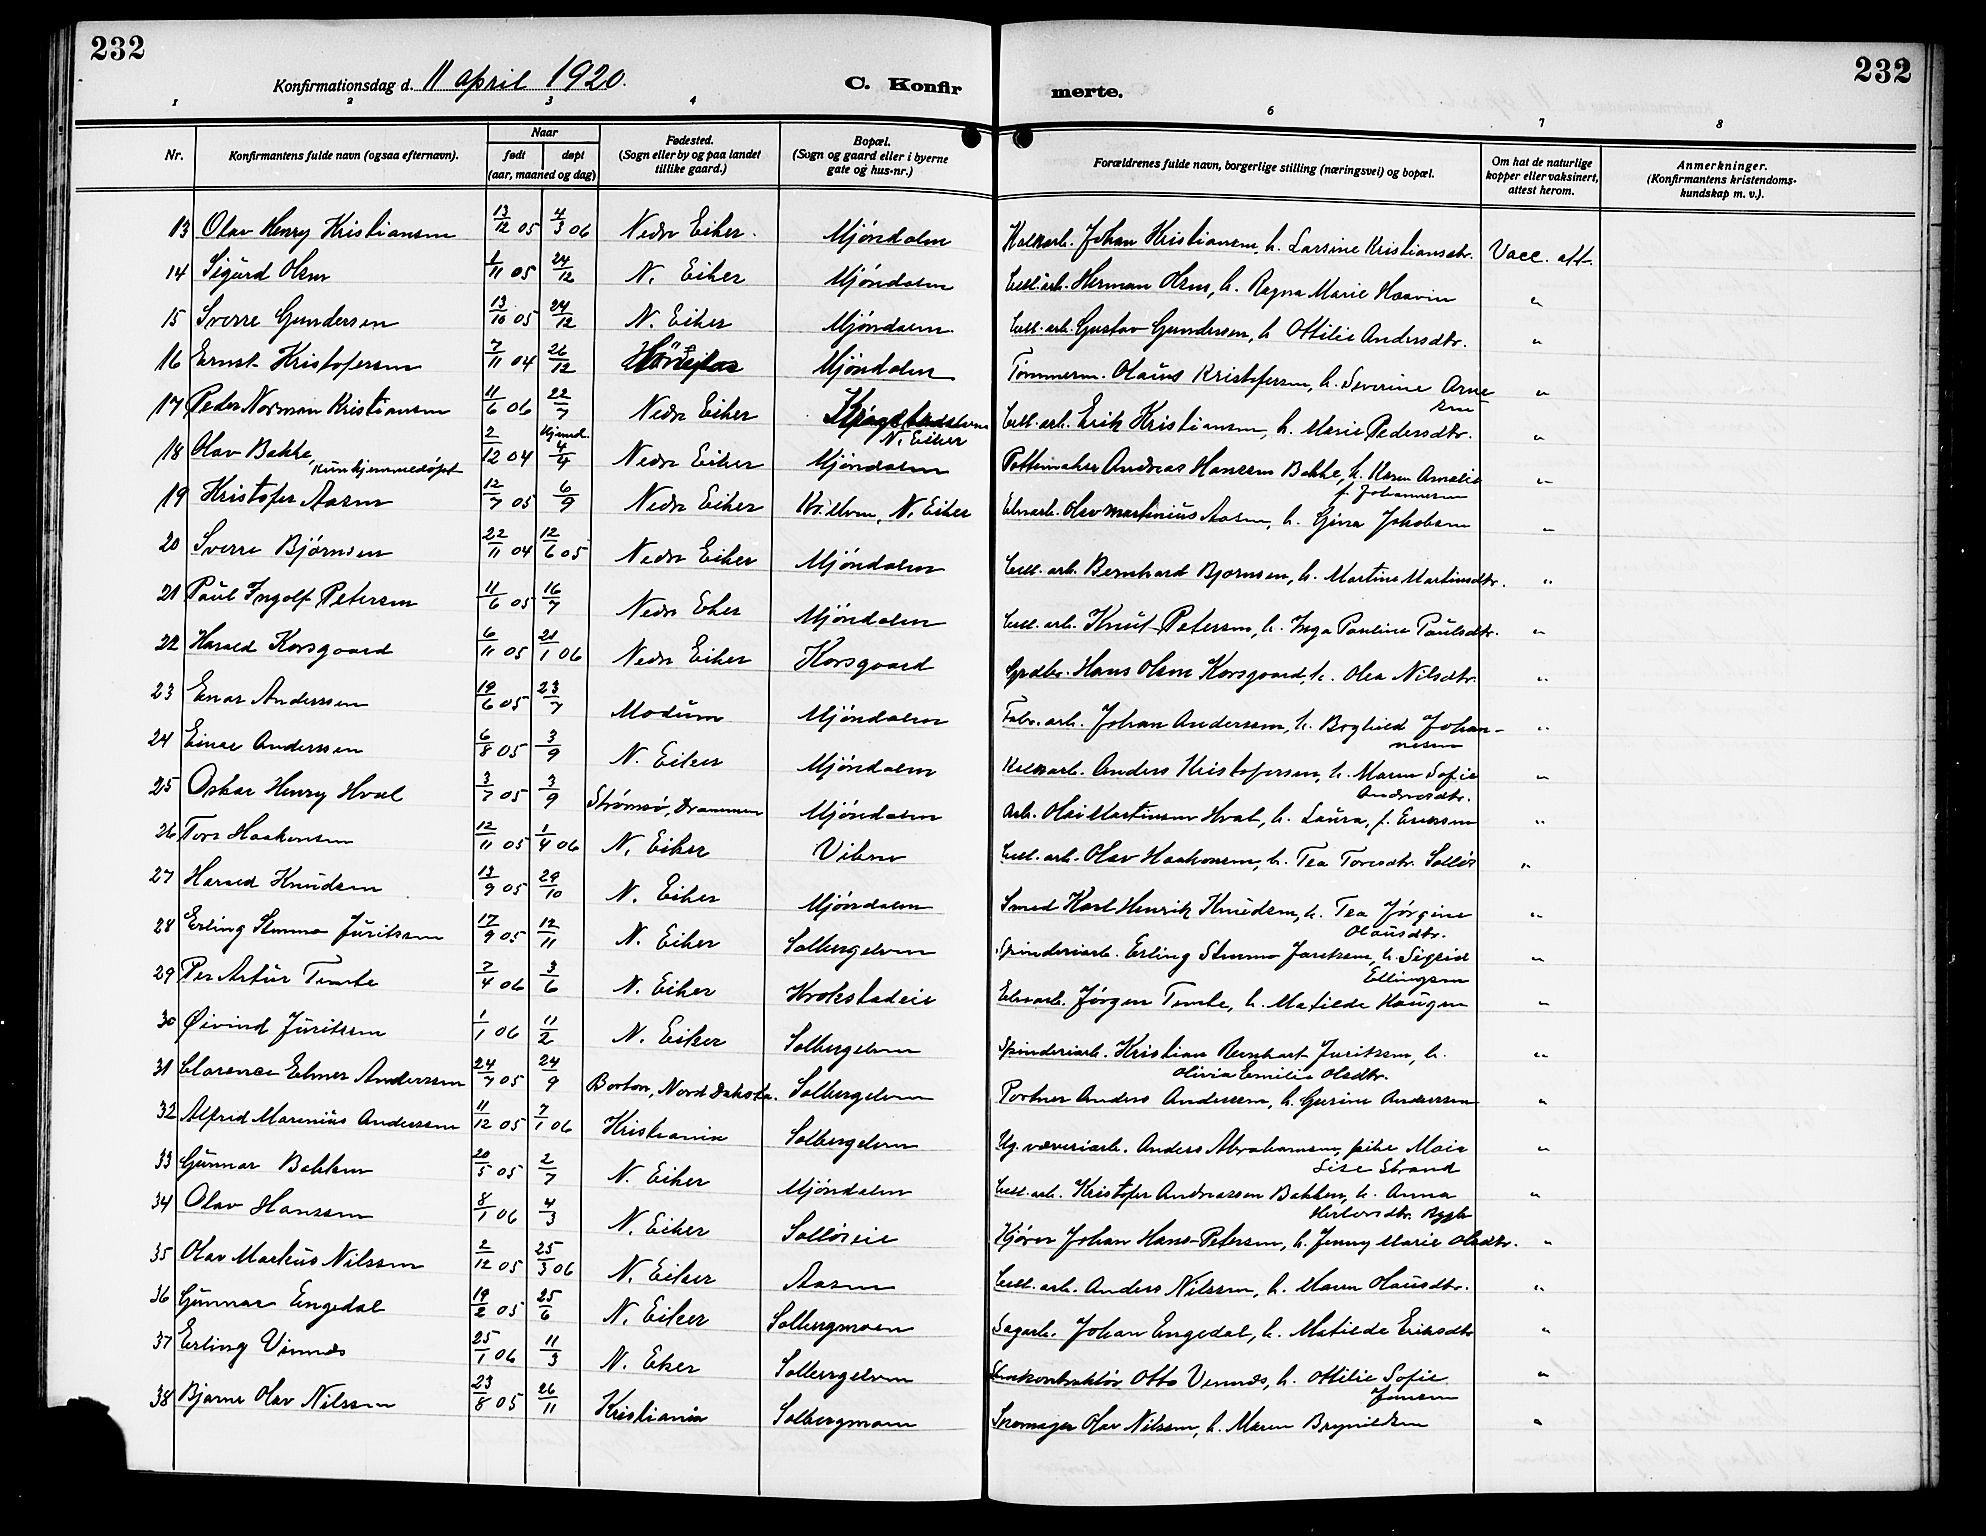 232
232
Konfirmationsdag d. 11 april 1920.
C. Konfirmerte.
1 2 3 4 6 7 8
Nr.
Konfirmantens fulde navn (ogsaa efternavn).
Naar
født
døpt
(aar, maaned og dag)
Fødested.
(Sogn eller by og paa landet
tillike gaard.)
Bopæl.
(Sogn og gaard eller i byerne
gate og hus-nr.)
Forældrenes fulde navn, borgerlige stilling (næringsvei) og bopæl.
Om hat de naturlige
kopper eller vaksinert,
attest herom.
Anmerkninger.
(Konfirmantens kristendoms-
kundskap m. v.).
13 Olav Henry Kristiansen 13/12 05 4/3 06 Nedre Eiker. Mjøndalen Kalkarb. Johan Kristiansen, h. Larsine Kristiansdtr. Vacc. att.
14 Sigurd Olsen 1/11 05 24/12 N. Eiker Mjøndalen Cell. arb. Herman Olsen, h. Ragna Marie Haavin "
15 Sverre Gundersen 13/10 05 24/12 N. Eiker Mjøndalen Cell. arb. Gustav Gundersen, h. Ottilie Andersdtr. "
16 Ernst Kristofersen 7/11 04 26/12 Mjøndalen Tømmerm. Olaus Kristofersen, h. Severine Arne
sen "
17 Peder Norman Kristiansen 11/6 06 22/7 Nedre Eiker N. Eiker Cell. arb. Erik Kristiansen, h. Marie Pedersdtr. "
18 Olav Bakke, kun hjemmedøpt 2/12 04 Hjemd. 4/4 Nedre Eiker Mjøndalen Pottemaker Andreas Hansen Bakke, h. Karen Amalie
f. Johannesen "
19 Kristofer Aasen 12/7 05 6/9 Nedre Eiker Kr. elven, N. Eiker Elvearb. Olav Martinius Aasen, h. Gina Jakobsen "
20 Sverre Bjørnsen 22/11 04 12/6 05 Nedre Eiker Mjøndalen Cell. arb. Bernhard Bjørnsen, h. Martine Martinsdtr. "
21 Paul Ingolf Petersen 11/6 05 16/7 Nedre Eker Mjøndalen Cell. arb. Knut Petersen, h. Inga Pauline Paulsdtr. "
22 Harald Korsgaard 6/11 05 21/1 06 Nedre Eiker Korsgaard Grdbr. Hans Olsen Korsgaard, h. Olea Nilsdtr. "
23 Enar Anderssen 19/6 05 23/7 Modum Mjøndalen Fabr. arb. Johan Anderssen, h. Borghild Johan-
nesen "
24 Einar Anderssen 6/8 05 3/9 N. Eiker Mjøndalen Kalkarb. Anders Kristofersen, h. Maren Sofie
Andersdtr. "
25 Oskar Henry Hval 3/7 05 3/9 Strømsø, Drammen Mjøndalen Arb. Ole Martinsen Hval, h. Laura, f. Eriksen "
26 Tore Haakensen 12/11 05 1/4 06 N. Eiker Vibno Cell. arb. Olav Haakonsen, h. Tea Toresdtr. Solløs "
27 Harald Knudsen 13/9 05 29/10 N. Eiker Mjøndalen Smed Karl Henrik Knudsen, h. Tea Jørgine
Olausdtr. "
28 Erling Stenmo Juritsen 17/9 05 12/11 N. Eiker Solbergelven Spinderiarb. Erling Stenmo Juritsen, h. Sigrid
Ellingsen "
29 Per Artur Temte 7/4 06 3/6 N. Eiker Krokstadeie Elvearb. Jørgen Temte, h. Matilde Haugen "
30 Øivind Juritsen 1/1 06 11/2 N. Eiker Solbergelven Spinderiarb. Kristian Bernhart Juritsen, h.
Olivia Emilie Olsdtr. "
31 Clarence Elmer Anderssen 24/7 05 24/9 Norddakota. Solbergelven Portner Anders Anderssen, h. Gusine Anderssen "
32 Alfred Marenius Anderssen 11/12 05 7/1 06 Kristiania Solbergelven Ug. væveriarb. Anders Abrahamsen, pike Maie
Lise Strand "
33 Gunnar Bakken 20/5 05 2/7 N. Eiker Mjøndalen Cell. arb. Kristofer Andreassen Bakken, h. Anna "
34 Olav Hanssen 8/1 06 4/3 N. Eiker Solløseie Kjører Johan Hans-Petersen, h. Jenny Marie Olsdtr. "
35 Olav Markus Nilssen 2/12 05 25/3 06 N. Eiker Aasen Cell. arb. Anders Nilssen, h. Maren Olausdtr. "
36 Gunnar Engedal 19/2 05 25/6 N. Eiker Solbergmoen Sagarb. Johan Engedal, h. Matilde Eriksdtr "
37 Erling Vinnæs 25/1 06 11/3 N. Eker Solbergelven Otto Vennæs, h. Ottilie Sofie
Jensen "
38 Bjarne Olav Nilssen 23/8 05 26/11 Kristiania Solbergmoen Skomager Olav Nilssen, h. Maren Brynildsen "